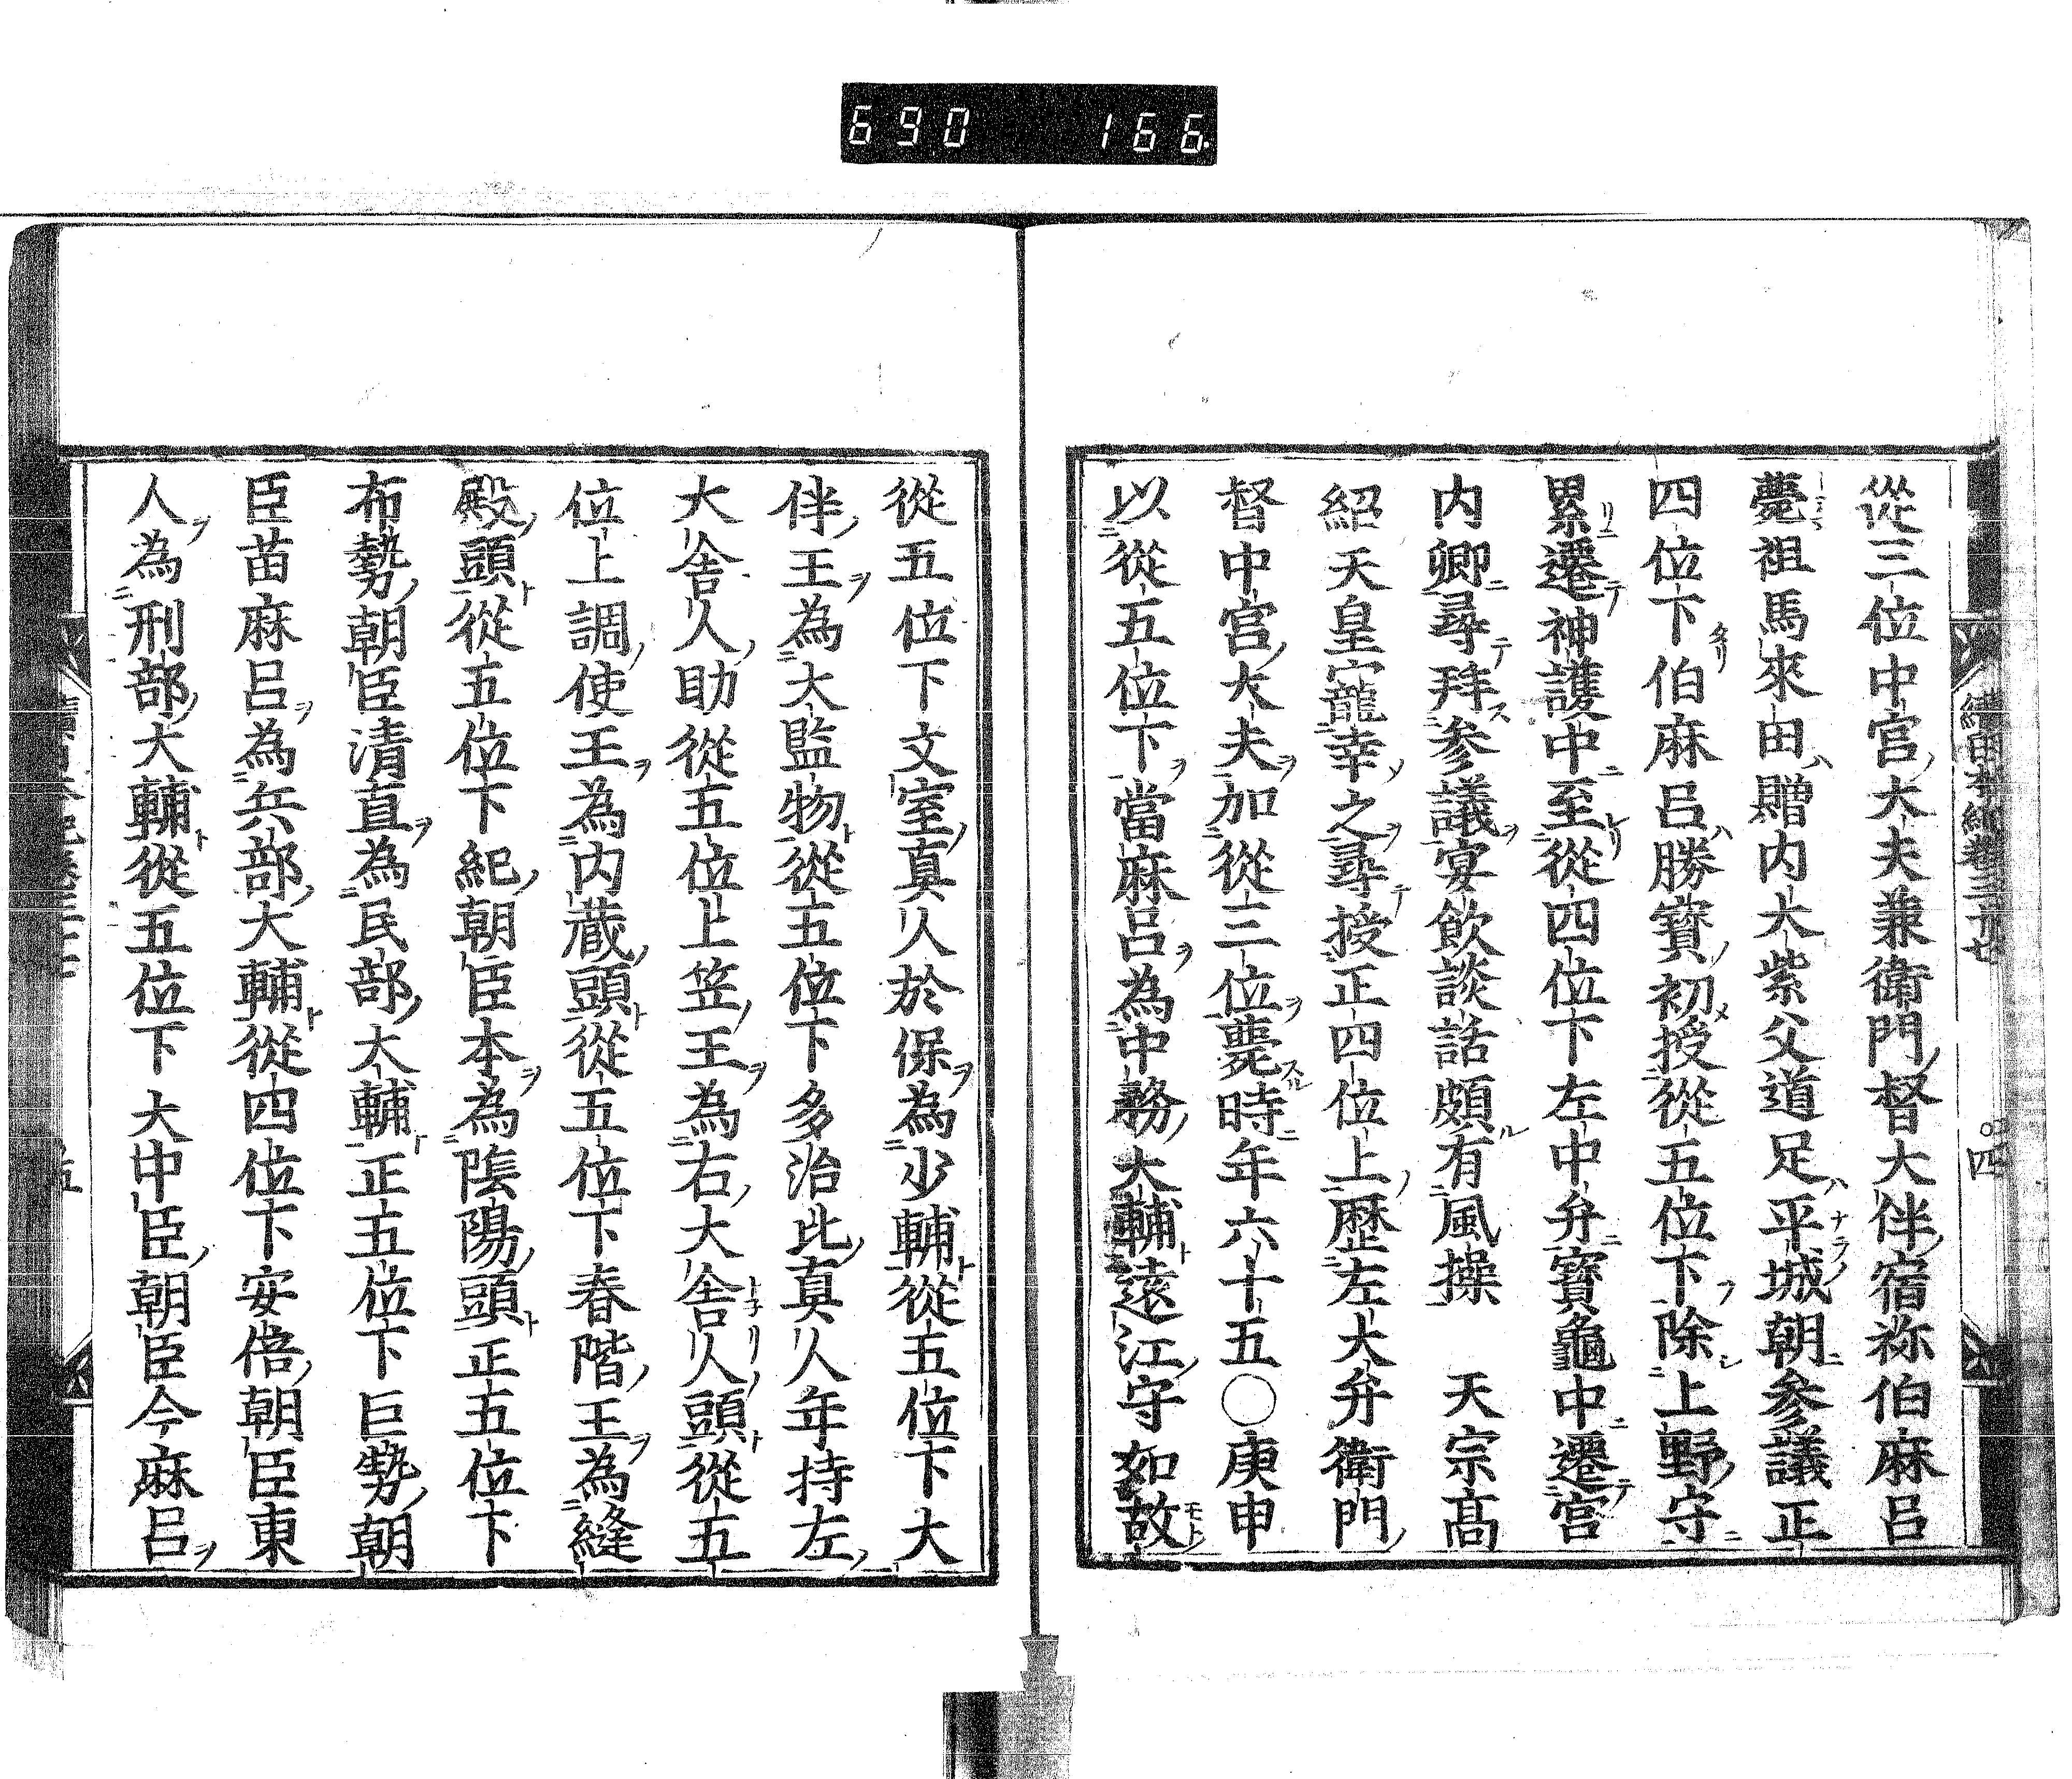 690 166
從三位中宮大夫兼衛門督大伴宿祢伯麻呂
薨祖馬來由贈内大紫父道足平城朝参議正
四位下伯麻呂勝寶初授從五位下除上野守
累遷神護中至從四位下左中弁寶龜中遷宮
内卿尋拜参議宴飲談話頗有風操 天宗髙
紹天皇寵幸之尋授正四位上歴左大弁衛門
督中宮大夫加從三位薨時年六十五○庚申
以從五位下當麻呂為中務大輔遠江守如故
從五位下文室真人於保為少輔從五位下大
伴王為大監物從五位下多治比真人年持左
大舎人助從五位上笠王為右大舎人頭從五
位上調使王為内蔵頭從五位下春階王為縫
殿頭從五位下紀朝臣本為陰陽頭正五位下
布勢朝臣清直為民部大輔正五位下巨勢朝
臣苗麻呂為兵部大輔從四位下安倍朝臣東
人為刑部大輔從五位下大中臣朝臣今麻呂